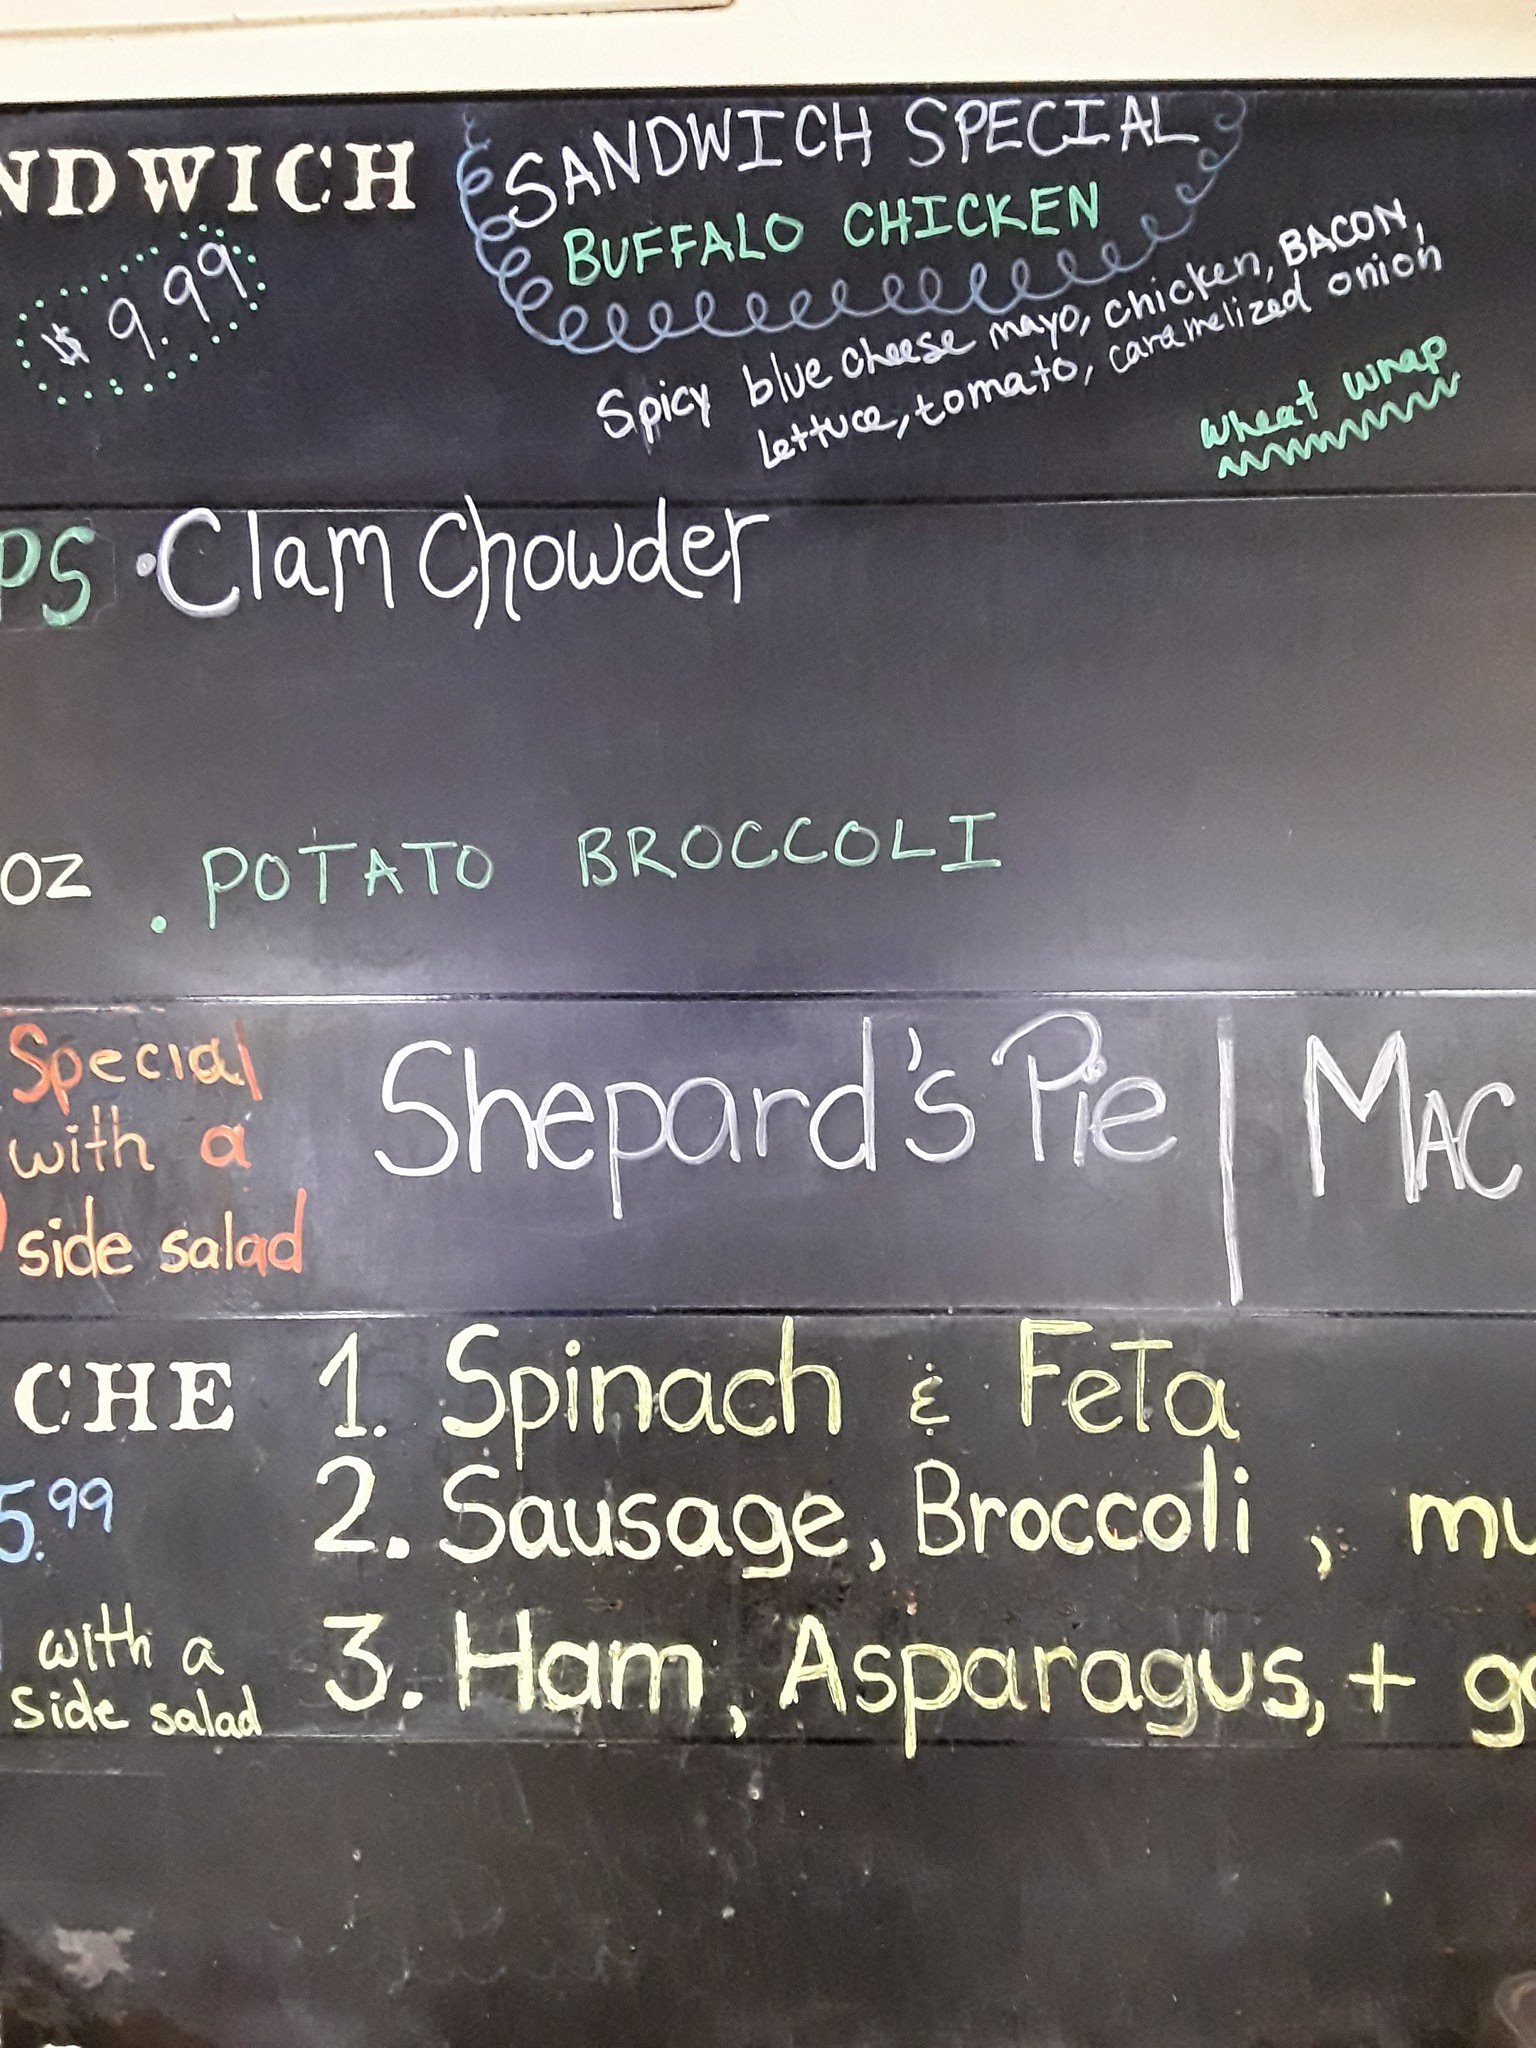 NDWICH
$ 9.99
SANDWICH SPECIAL
BUFFALO CHICKEN
Spicy blue cheese mayo, chicken, BACON,
lettuce, tomato, caramelized onion
wheat wrap
PS • Clam Chowder
OZ . POTATO BROCCOLI
Special
with a
side salad
Shepard's Pie | MAC
CHE
5.99
with a
side salad
1. Spinach & FeTa
2. Sausage, Broccoli , mu
3. Ham, Asparagus, + go